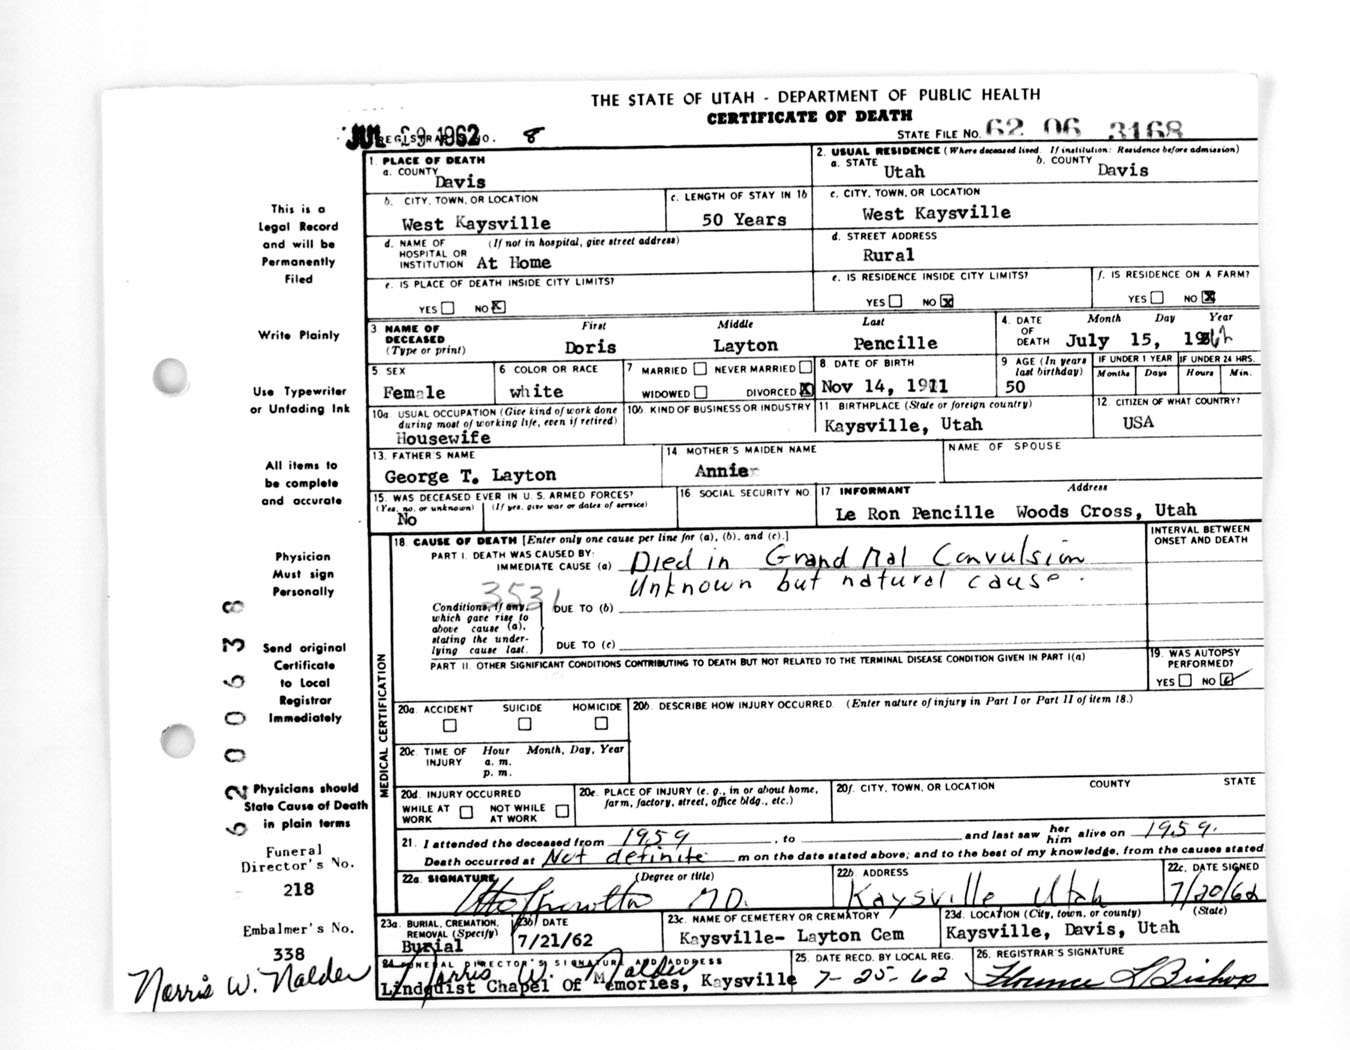 THE STATE OF UTAH - DEPARTMENT OF PUBLIC HEALTH
CERTIFICATE OF DEATH
JUL 1962 REGISTRAR'S NO. 8
STATE FILE NO. 62 06 3168
1. PLACE OF DEATH
a. COUNTY
Davis
2. USUAL RESIDENCE (Where deceased lived. If institution: Residence before admission)
a. STATE Utah
b. COUNTY Davis
b. CITY, TOWN, OR LOCATION
West Kaysville
c. LENGTH OF STAY IN 1b
50 Years
c. CITY, TOWN, OR LOCATION
West Kaysville
d. NAME OF HOSPITAL OR INSTITUTION (If not in hospital, give street address)
At Home
d. STREET ADDRESS
Rural
e. IS PLACE OF DEATH INSIDE CITY LIMITS?
YES NO X
e. IS RESIDENCE INSIDE CITY LIMITS?
YES NO X
f. IS RESIDENCE ON A FARM?
YES NO X
3 NAME OF DECEASED (Type or print)
First Middle Last
Doris Layton Pencille
4. DATE OF DEATH Month Day Year
July 15, 1962
5. SEX
Female
6 COLOR OR RACE
white
7 MARRIED NEVER MARRIED
WIDOWED DIVORCED X
8 DATE OF BIRTH
Nov 14, 1911
9 AGE (In years last birthday)
50
IF UNDER 1 YEAR IF UNDER 24 HRS.
Months Days Hours Min.
10a USUAL OCCUPATION (Give kind of work done during most of working life, even if retired)
Housewife
10b. KIND OF BUSINESS OR INDUSTRY
11 BIRTHPLACE (State or foreign country)
Kaysville, Utah
12 CITIZEN OF WHAT COUNTRY?
USA
13. FATHER'S NAME
George T. Layton
14 MOTHER'S MAIDEN NAME
Annie
NAME OF SPOUSE
15. WAS DECEASED EVER IN U.S. ARMED FORCES?
(Yes, no, or unknown) (If yes, give war or dates of service)
No
16 SOCIAL SECURITY NO.
17 INFORMANT Address
Le Ron Pencille Woods Cross, Utah
MEDICAL CERTIFICATION
18 CAUSE OF DEATH [Enter only one cause per line for (a), (b), and (c).]
INTERVAL BETWEEN ONSET AND DEATH
PART I. DEATH WAS CAUSED BY:
IMMEDIATE CAUSE (a) Died in Grand Mal Convulsion
Unknown but natural cause.
3531
Conditions, if any, which gave rise to above cause (a), stating the underlying cause last.
DUE TO (b)
DUE TO (c)
PART II. OTHER SIGNIFICANT CONDITIONS CONTRIBUTING TO DEATH BUT NOT RELATED TO THE TERMINAL DISEASE CONDITION GIVEN IN PART I(a)
19. WAS AUTOPSY PERFORMED?
YES NO
20a. ACCIDENT SUICIDE HOMICIDE
20b. DESCRIBE HOW INJURY OCCURRED. (Enter nature of injury in Part I or Part II of item 18.)
20c. TIME OF INJURY Hour Month, Day, Year
a. m.
p. m.
20d. INJURY OCCURRED
WHILE AT WORK NOT WHILE AT WORK
20e. PLACE OF INJURY (e. g., in or about home, farm, factory, street, office bldg., etc.)
20f. CITY, TOWN, OR LOCATION COUNTY STATE
21. I attended the deceased from 1959, to and last saw her him alive on 1959.
Death occurred at Not definite m on the date stated above; and to the best of my knowledge, from the causes stated
22a. SIGNATURE (Degree or title)
M.D.
22b. ADDRESS
Kaysville, Utah
22c. DATE SIGNED
7/20/62
23a. BURIAL, CREMATION, REMOVAL (Specify)
Burial
23b DATE
7/21/62
23c. NAME OF CEMETERY OR CREMATORY
Kaysville- Layton Cem
23d. LOCATION (City, town, or county) (State)
Kaysville, Davis, Utah
24 FUNERAL DIRECTOR'S SIGNATURE AND ADDRESS
Norris W. Nalder
Lindquist Chapel Of Memories, Kaysville
25. DATE RECD. BY LOCAL REG.
7-25-62
26. REGISTRAR'S SIGNATURE
Florence L Bishop
This is a
Legal Record
and will be
Permanently
Filed
Write Plainly
Use Typewriter
or Unfading Ink
All items to
be complete
and accurate
Physician
Must sign
Personally
Send original
Certificate
to Local
Registrar
Immediately
Physicians should
State Cause of Death
in plain terms
Funeral
Director's No.
218
Embalmer's No.
338
Norris W. Nalder